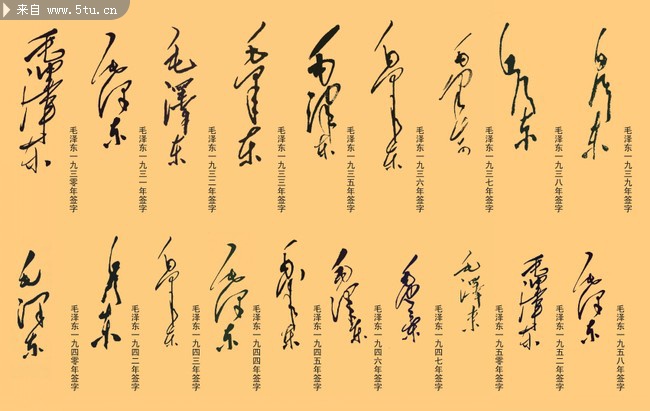 来自 www.5tu.cn
毛泽东
毛泽东一九三零年签字
毛泽东
毛泽东一九三一年签字
毛泽东
毛泽东一九三二年签字
毛泽东
毛泽东一九三三年签字
毛泽东
毛泽东一九三五年签字
毛泽东
毛泽东一九三六年签字
毛泽东
毛泽东一九三七年签字
毛泽东
毛泽东一九三八年签字
毛泽东
毛泽东一九三九年签字
毛泽东
毛泽东一九四零年签字
毛泽东
毛泽东一九四二年签字
毛泽东
毛泽东一九四三年签字
毛泽东
毛泽东一九四四年签字
毛泽东
毛泽东一九四五年签字
毛泽东
毛泽东一九四六年签字
毛泽东
毛泽东一九四七年签字
毛泽东
毛泽东一九五零年签字
毛泽东
毛泽东一九五二年签字
毛泽东
毛泽东一九五八年签字